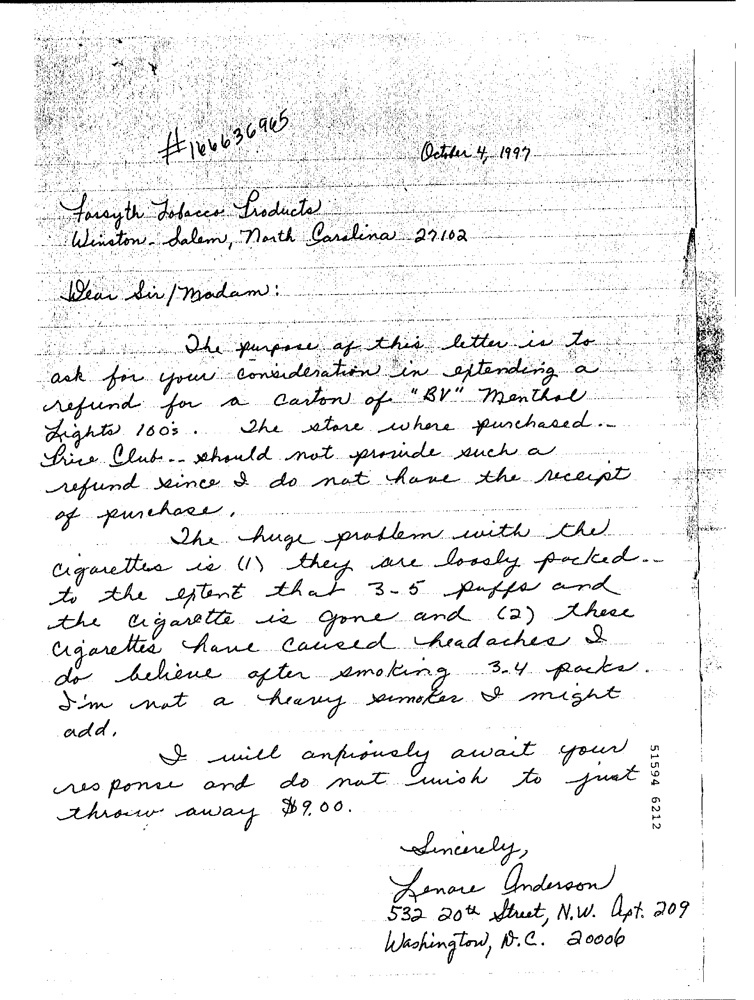 #166636965
October 4, 1997
Forsyth Tobacco Products
Winston-Salem, North Carolina 27102
Dear Sir/Madam:
The purpose of this letter is to
ask for your consideration in extending a
refund for a carton of "BV" Menthol
Lights 100's. The store where purchased--
Price Club-- should not provide such a
refund since I do not have the receipt
of purchase.
The huge problem with the
cigarettes is (1) they are loosly packed--
to the extent that 3-5 puffs and
the cigarette is gone and (2) these
cigarettes have caused headaches I
do believe after smoking 3-4 packs.
I'm not a heavy smoker I might
add.
I will anxiously await your
response and do not wish to just
throw away $9.00.
Sincerely,
Lenore Anderson
532 20th Street, N.W. Apt. 209
Washington, D.C. 20006
51594 6212